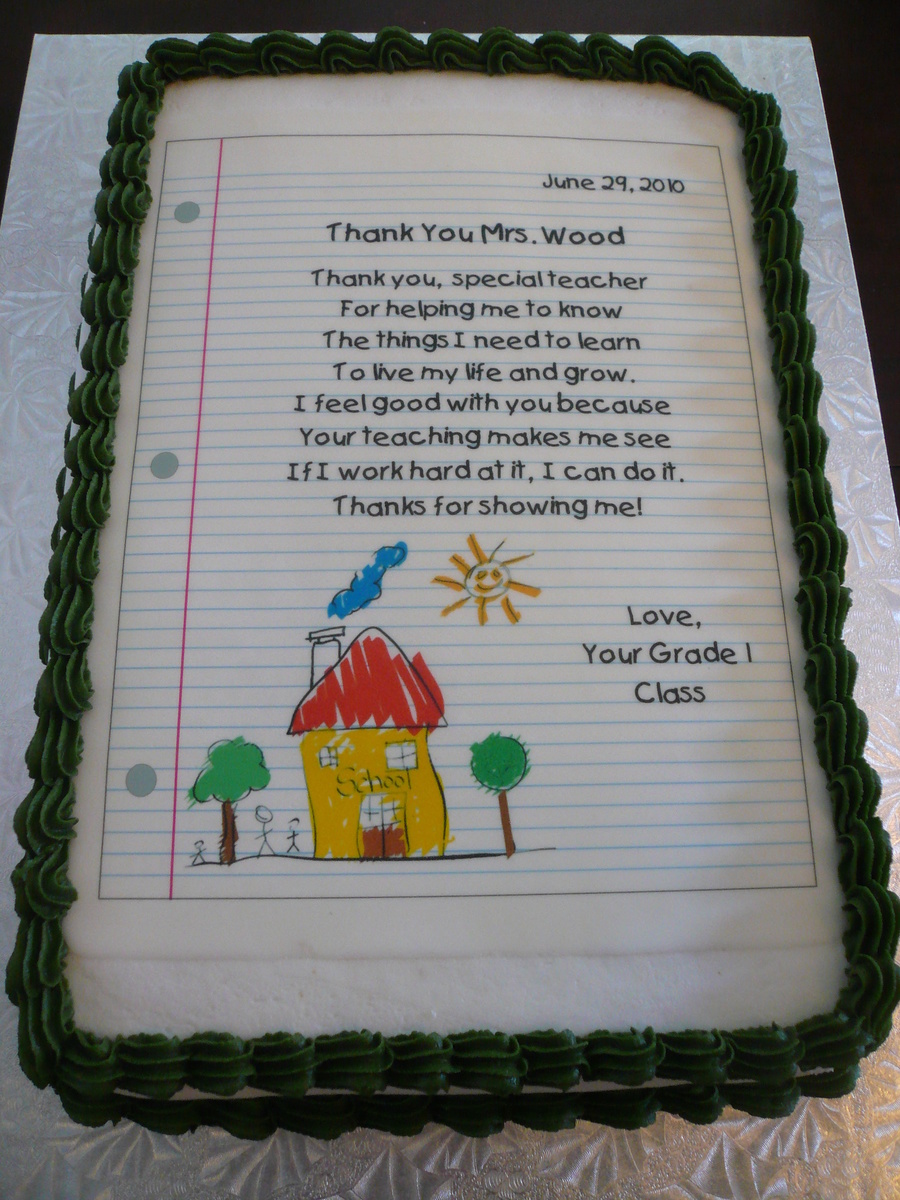 June 29, 2010
Thank You Mrs. Wood
Thank you, special teacher
For helping me to know
The things I need to learn
To live my life and grow.
I feel good with you because
Your teaching makes me see
If I work hard at it, I can do it.
Thanks for showing me!
Love,
Your Grade 1
Class
School